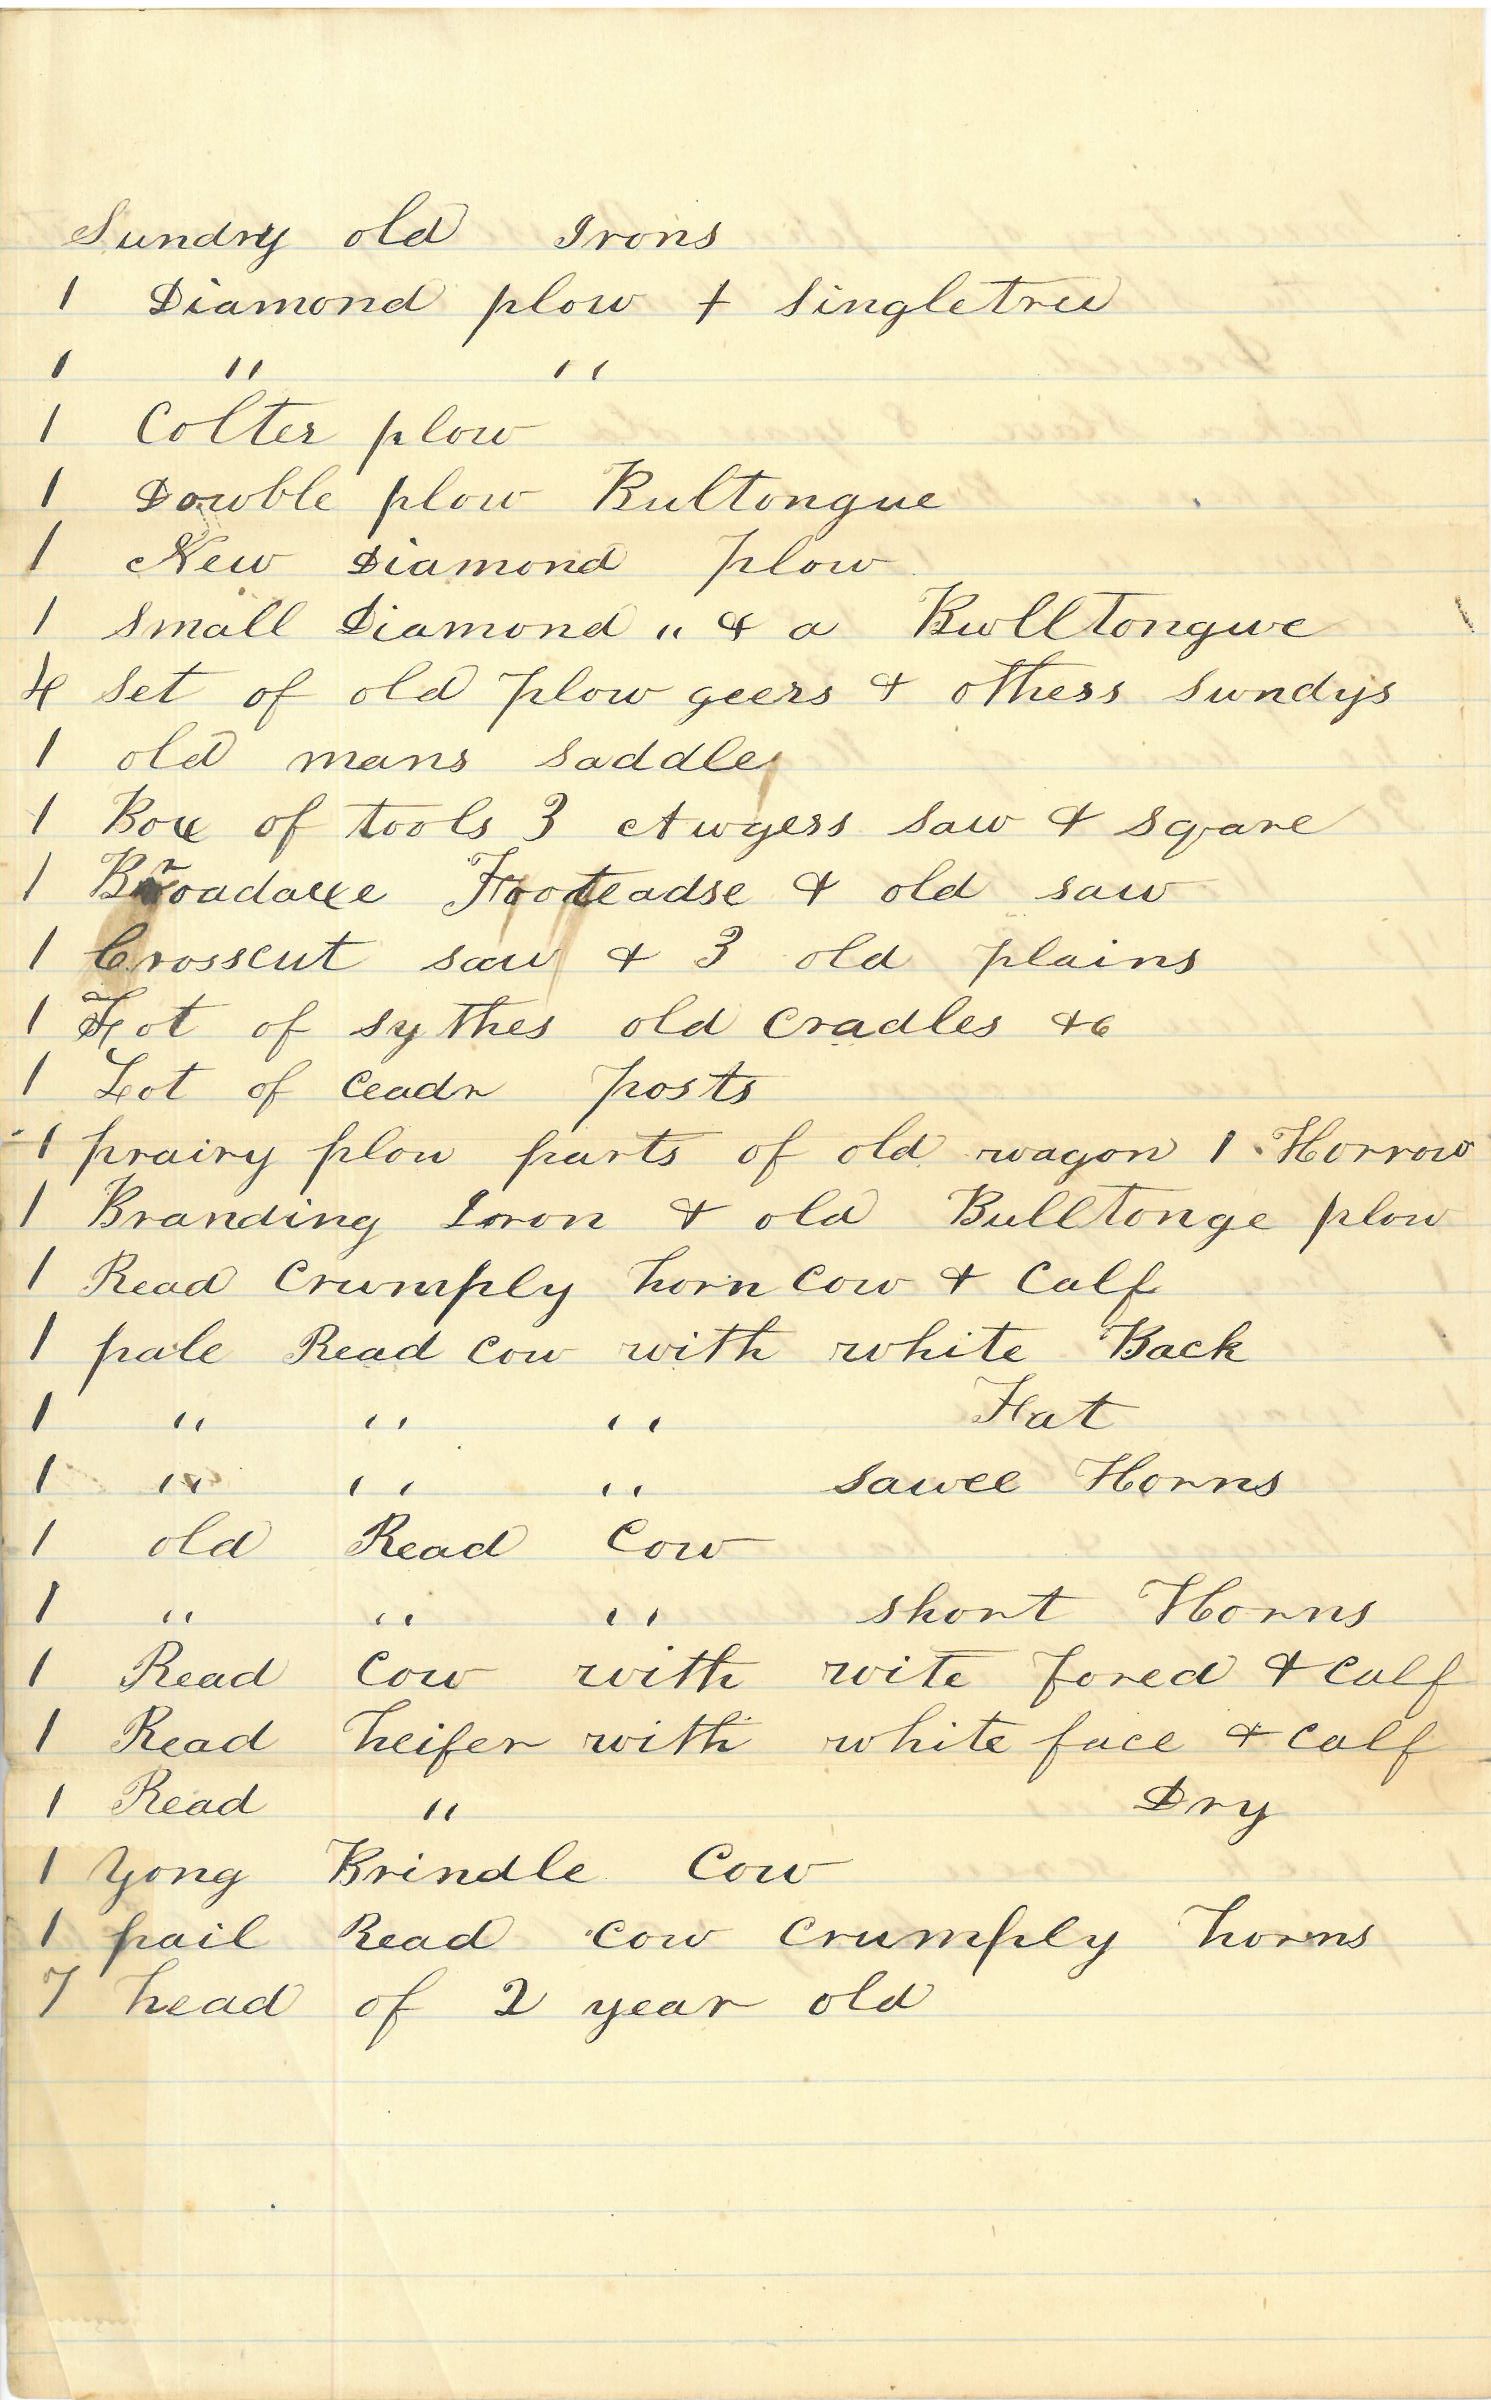 Sundry old Irons
1 Diamond plow & Singletree
1 " "
1 Colter plow
1 Dowble plow Bultongue
1 New Diamond plow
1 Small Diamond " & a Bulltongue
4 Set of old plow geers & others Sundys
1 old mans Saddle
1 Box of tools 3 Awgers saw & sqare
1 Broadaxe Footeadse & old saw
1 Crosscut saw & 3 old plains
1 Lot of sythes old cradles &c
1 Lot of Ceadr posts
1 prairy plow parts of old wagon 1 Horrow
1 Branding Iron & old Bulltonge plow
1 Read Crumply horn Cow & Calf
1 pale Read Cow with white Back
1 " " " Flat
1 " " " Sawee Horns
1 old Read Cow
1 " " " short Horns
1 Read Cow with wite fored & Calf
1 Read heifer with white face & Calf
1 Read " Dry
1 Yong Brindle Cow
1 pail Read cow crumply horns
7 head of 2 year old